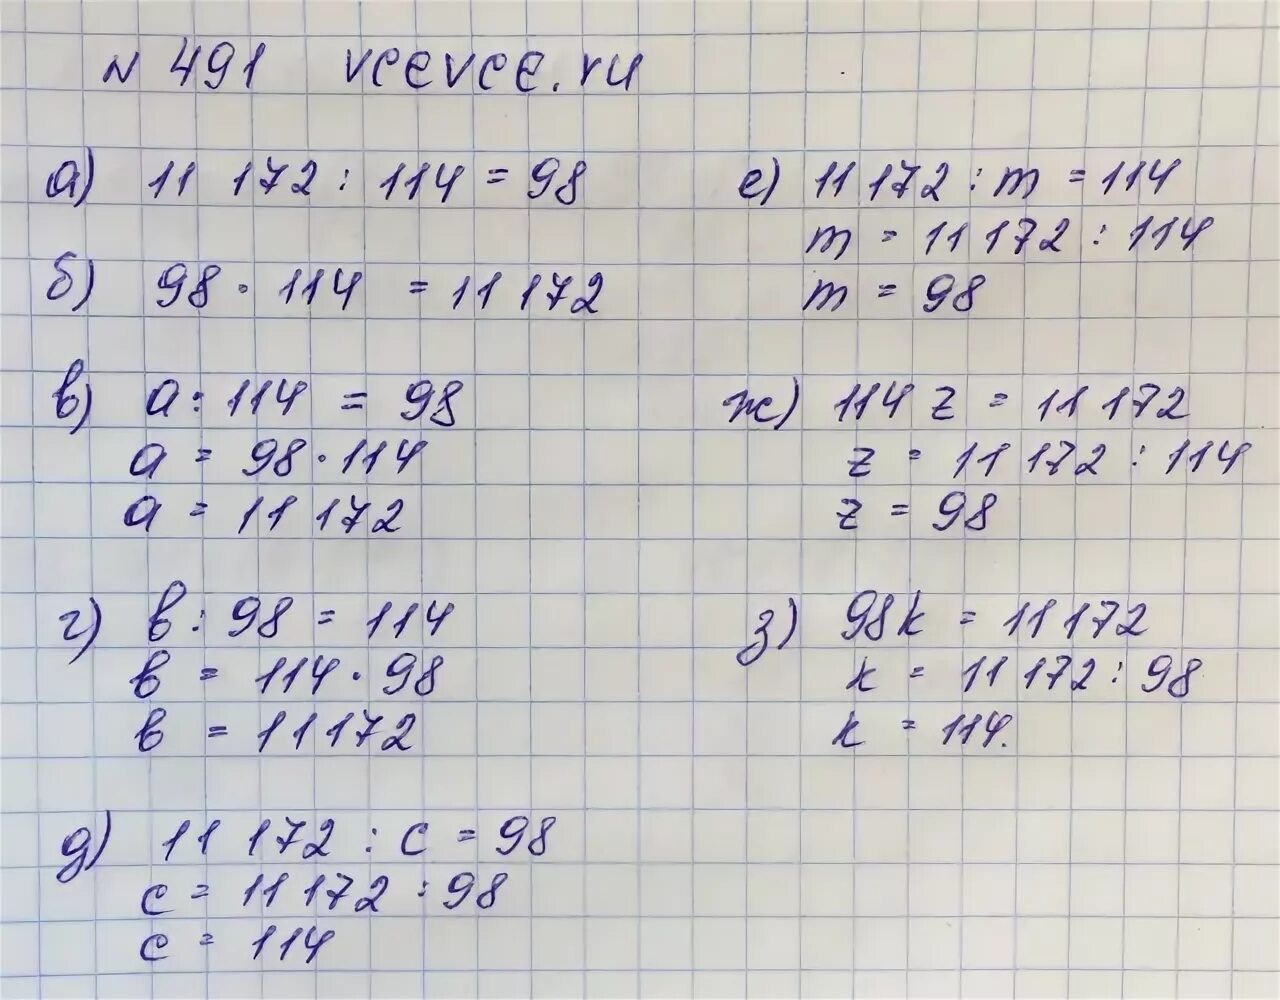 N 491 vcevce.ru
а) 11 172 : 114 = 98
б) 98 · 114 = 11 172
в) a : 114 = 98
a = 98 · 114
a = 11 172
г) в : 98 = 114
в = 114 · 98
в = 11172
д) 11 172 : c = 98
c = 11172 : 98
c = 114
е) 11 172 : m = 114
m = 11 172 : 114
m = 98
ж) 114 z = 11 172
z = 11 172 : 114
z = 98
з) 98k = 11172
k = 11 172 : 98
k = 114.